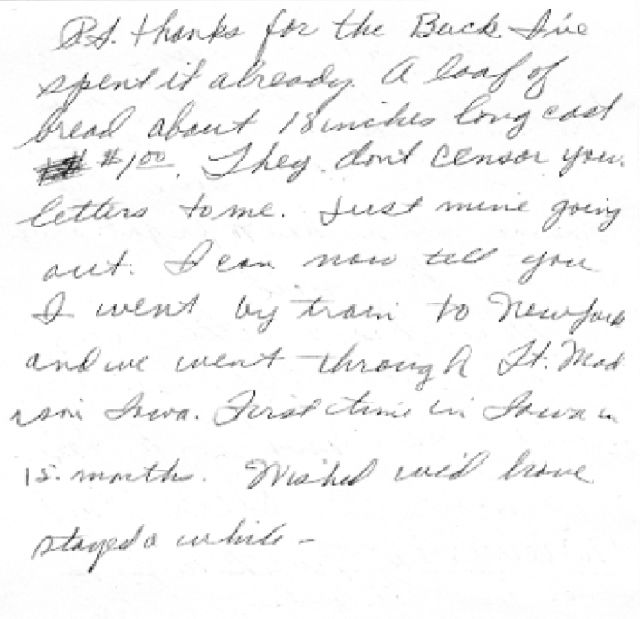 P.S. thanks for the Buck. I've
spent it already. A loaf of
bread about 18 inches long cost
$1.00. They don't censor your
letters to me. Just mine going
out. I can now tell you
I went by train to New York
and we went through Ft. Mad
ison Iowa. First time in Iowa in
15 months. Wished we'd have
stayed a while -